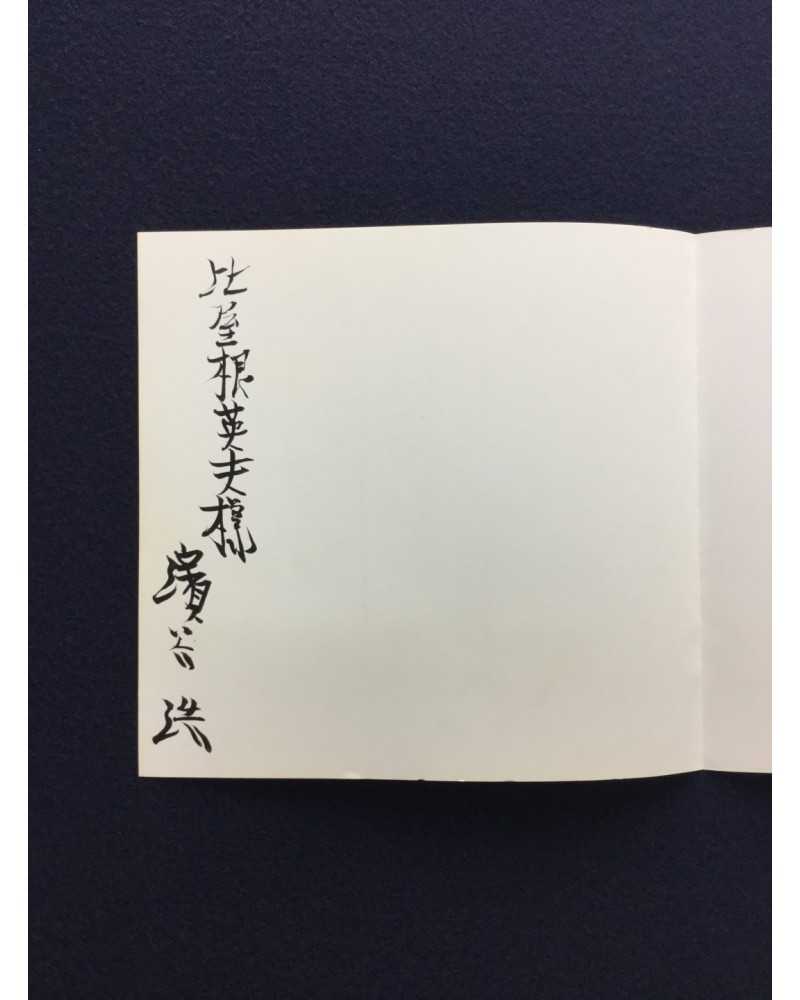 比屋根英夫様
濱谷浩